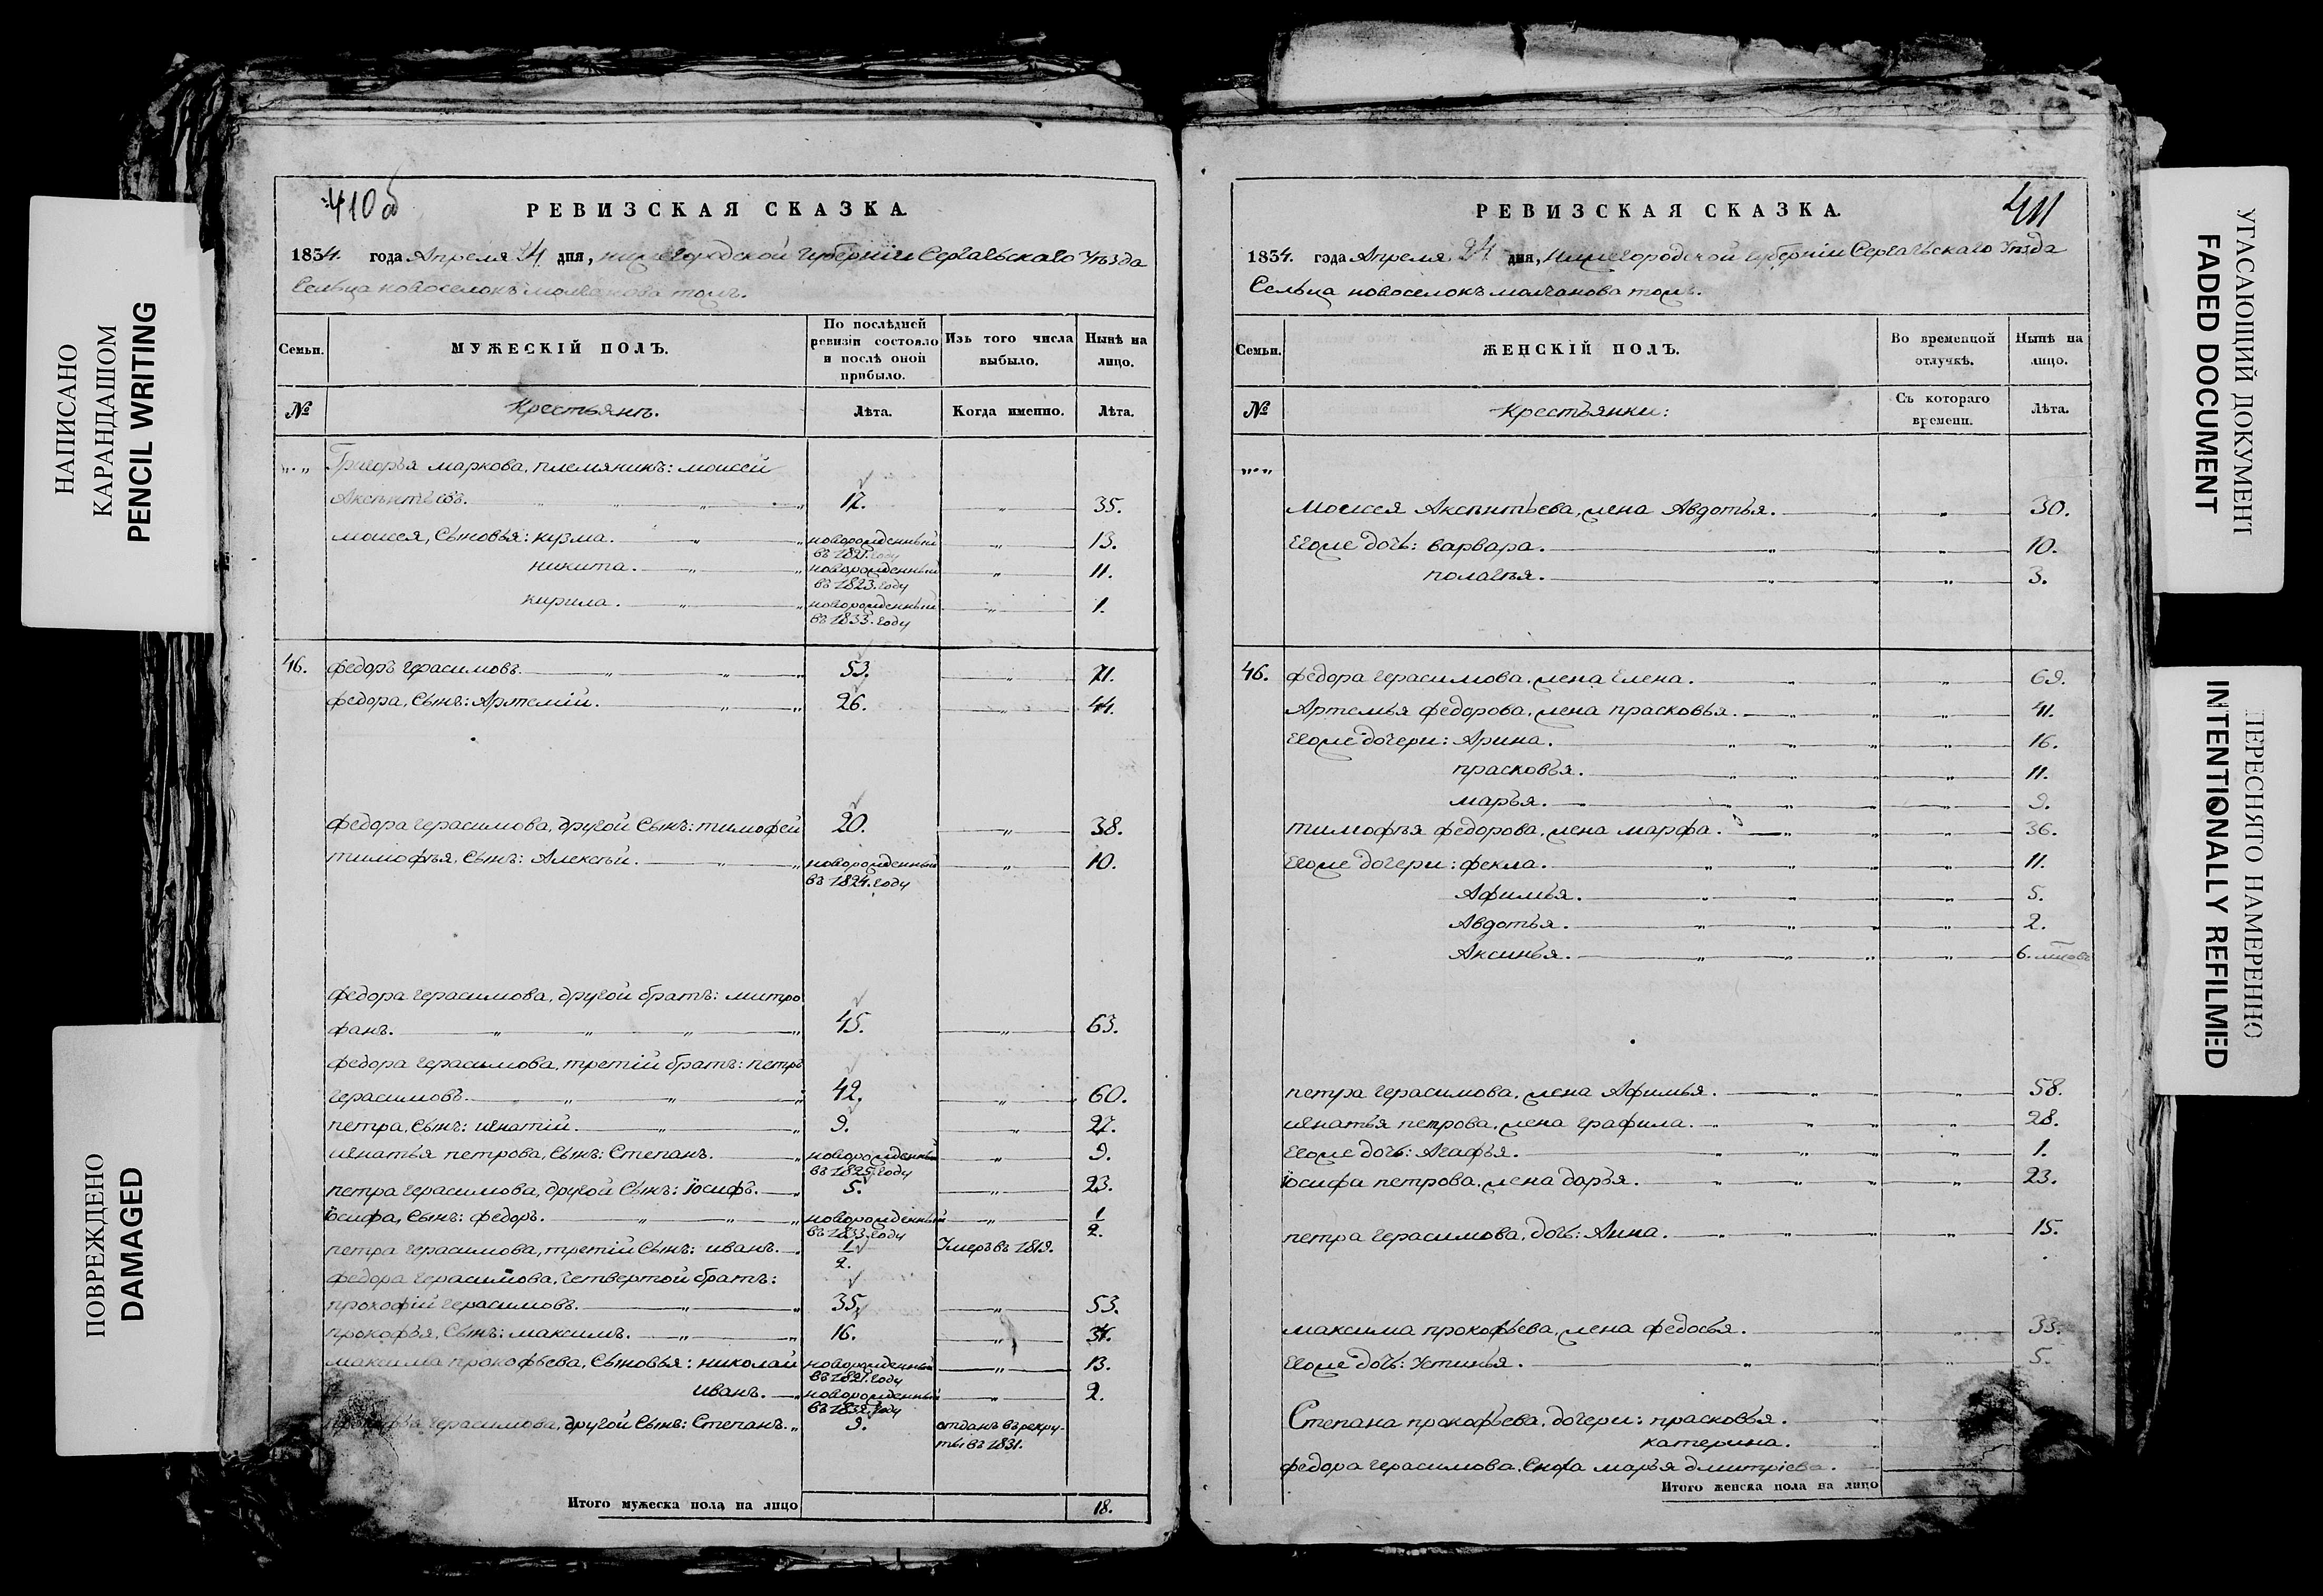 НАПИСАНО
КАРАНДАШОМ
PENCIL WRITING
ПОВРЕЖДЕНО
DAMAGED
410 об
РЕВИЗСКАЯ СКАЗКА.
1834. года Апреля 24 дня, нижегородской губернiи Сергачьскаго Уѣзда
Сельца новоселокъ молчанова тожъ.
Семьи.
МУЖЕСКІЙ ПОЛЪ.
По послѣдней ревизіи состояло и послѣ оной прибыло.
Изъ того числа выбыло.
Нынѣ на лицо.
№ Крестьянъ. Лѣта. Когда именно. Лѣта.
„ „ Григорья маркова, племянникъ: моисей
Аксѣнтьевъ. 17. „ 35.
моисея, Сыновья: кузма. новорожденный въ 1821. году „ 13.
никита. новорожденный въ 1823. году „ 11.
кирила. новорожденный въ 1833. году „ 1.
46. федоръ герасимовъ. 53. „ 71.
федора, Сынъ: Артемій. 26. „ 44.
федора герасимова, другой Сынъ: тимофей 20. „ 38.
тимофѣя, Сынъ: Алексѣй. новорожденный въ 1824. году „ 10.
федора герасимова, другой братъ: митро
фанъ. 45. „ 63.
федора герасимова, третій братъ: петръ
герасимовъ. 42. „ 60.
петра, Сынъ: игнатій. 9. „ 27.
игнатья петрова, Сынъ: Степанъ. новорожденный въ 1825. году „ 9.
петра герасимова, другой Сынъ: іосифъ. 5. „ 23.
іосифа, Сынъ: федоръ. новорожденный въ 1833. году „ 1/2.
петра герасимова, третій Сынъ: иванъ. 1/2. Умеръ въ 1819.
федора герасимова, четвертой братъ:
прокофій герасимовъ. 35. „ 53.
прокофья, Сынъ: максимъ. 16. „ 34.
максима прокофьева, Сыновья: николай новорожденный въ 1821. году „ 13.
иванъ. новорожденный въ 1832. году „ 2.
прокофья герасимова, другой Сынъ: Степанъ. 9. отданъ въ рекру-
ты въ 1831.
Итого мужеска пола на лицо 18.
411
РЕВИЗСКАЯ СКАЗКА.
1834. года Апреля 24 дня, Нижегородской губерніи Сергачьскаго Уѣзда
Сельца новоселокъ молчанова тожъ.
Семьи.
ЖЕНСКІЙ ПОЛЪ.
Во временной отлучкѣ.
Нынѣ на лицо.
№ Крестьянки: Съ котораго времени. Лѣта.
„ „
моисея Аксѣнтьева, жена Авдотья. „ 30.
Егоже дочь: варвара. „ 10.
полагѣя. „ 3.
46. федора герасимова, жена Елена. „ 69.
Артемья федорова, жена прасковья. „ 41.
Егоже дочери: Арина. „ 16.
прасковья. „ 11.
марья. „ 9.
тимофѣя федорова, жена марфа. „ 36.
Егоже дочери: фекла. „ 11.
Афимья. „ 5.
Авдотья. „ 2.
Аксинья. „ 6.
петра герасимова, жена Афимья. „ 58.
игнатья петрова, жена графила. „ 28.
Егоже дочь: Агафья. „ 1.
іосифа петрова, жена дарья. „ 23.
петра герасимова, дочь: Анна. „ 15.
максима прокофьева, жена федосья. „ 33.
Егоже дочь: Устинья. „ 5.
Степана прокофьева, дочери: прасковья.
катерина.
федора герасимова, Сноха марья дмитріева.
Итого женска пола на лицо
УГАСАЮЩИЙ ДОКУМЕНТ
FADED DOCUMENT
ПЕРЕСНЯТО НАМЕРЕННО
INTENTIONALLY REFILMED